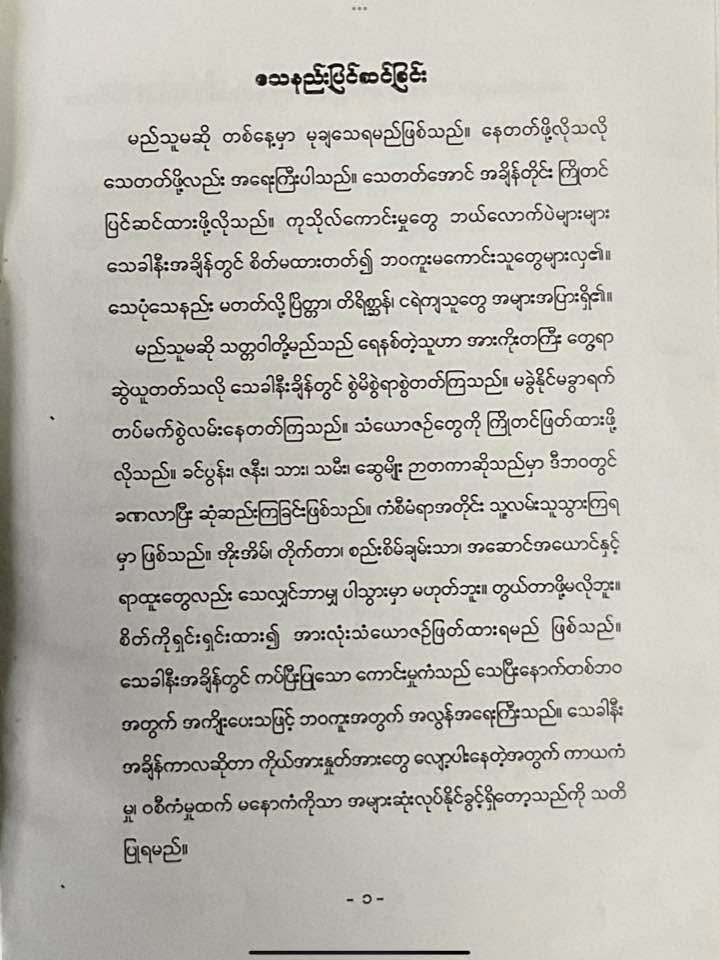 သေနည်းပြင်ဆင်ခြင်း
မည်သူမဆို တစ်နေ့မှာ မုချသေရမည်ဖြစ်သည်။ နေတတ်ဖို့လိုသလို
သေတတ်ဖို့လည်း အရေးကြီးပါသည်။ သေတတ်အောင် အချိန်တိုင်း ကြိုတင်
ပြင်ဆင်ထားဖို့လိုသည်။ ကုသိုလ်ကောင်းမှုတွေ ဘယ်လောက်ပဲများများ
သေခါနီးအချိန်တွင် စိတ်မထားတတ်၍ ဘဝကူးမကောင်းသူတွေများလှ၏။
သေပုံသေနည်း မတတ်လို့ ပြိတ္တာ၊ တိရိစ္ဆာန်၊ ငရဲကျသူတွေ အများအပြားရှိ၏။
မည်သူမဆို သတ္တဝါတို့မည်သည် ရေနစ်တဲ့သူဟာ အားကိုးတကြီး တွေ့ရာ
ဆွဲယူတတ်သလို သေခါနီးချိန်တွင် စွဲမိစွဲရာစွဲတတ်ကြသည်။ မခွဲနိုင်မခွာရက်
တပ်မက်စွဲလမ်းနေတတ်ကြသည်။ သံယောဇဉ်တွေကို ကြိုတင်ဖြတ်ထားဖို့
လိုသည်။ ခင်ပွန်း၊ ဇနီး၊ သား၊ သမီး၊ ဆွေမျိုး ဉာတကာဆိုသည်မှာ ဒီဘဝတွင်
ခဏလာပြီး ဆုံဆည်းကြခြင်းဖြစ်သည်။ ကံစီမံရာအတိုင်း သူ့လမ်းသူသွားကြရ
မှာ ဖြစ်သည်။ အိုးအိမ်၊ တိုက်တာ၊ စည်းစိမ်ချမ်းသာ၊ အဆောင်အယောင်နှင့်
ရာထူးတွေလည်း သေလျှင်ဘာမျှ ပါသွားမှာ မဟုတ်ဘူး။ တွယ်တာဖို့မလိုဘူး။
စိတ်ကိုရှင်းရှင်းထား၍ အားလုံးသံယောဇဉ်ဖြတ်ထားရမည် ဖြစ်သည်။
သေခါနီးအချိန်တွင် ကပ်ပြီးပြုသော ကောင်းမှုကံသည် သေပြီးနောက်တစ်ဘဝ
အတွက် အကျိုးပေးသဖြင့် ဘဝကူးအတွက် အလွန်အရေးကြီးသည်။ သေခါနီး
အချိန်ကာလဆိုတာ ကိုယ်အားနှုတ်အားတွေ လျော့ပါးနေတဲ့အတွက် ကာယကံ
မှု၊ ဝစီကံမှုထက် မနောကံကိုသာ အများဆုံးလုပ်နိုင်ခွင့်ရှိတော့သည်ကို သတိ
ပြုရမည်။
- ၁ -